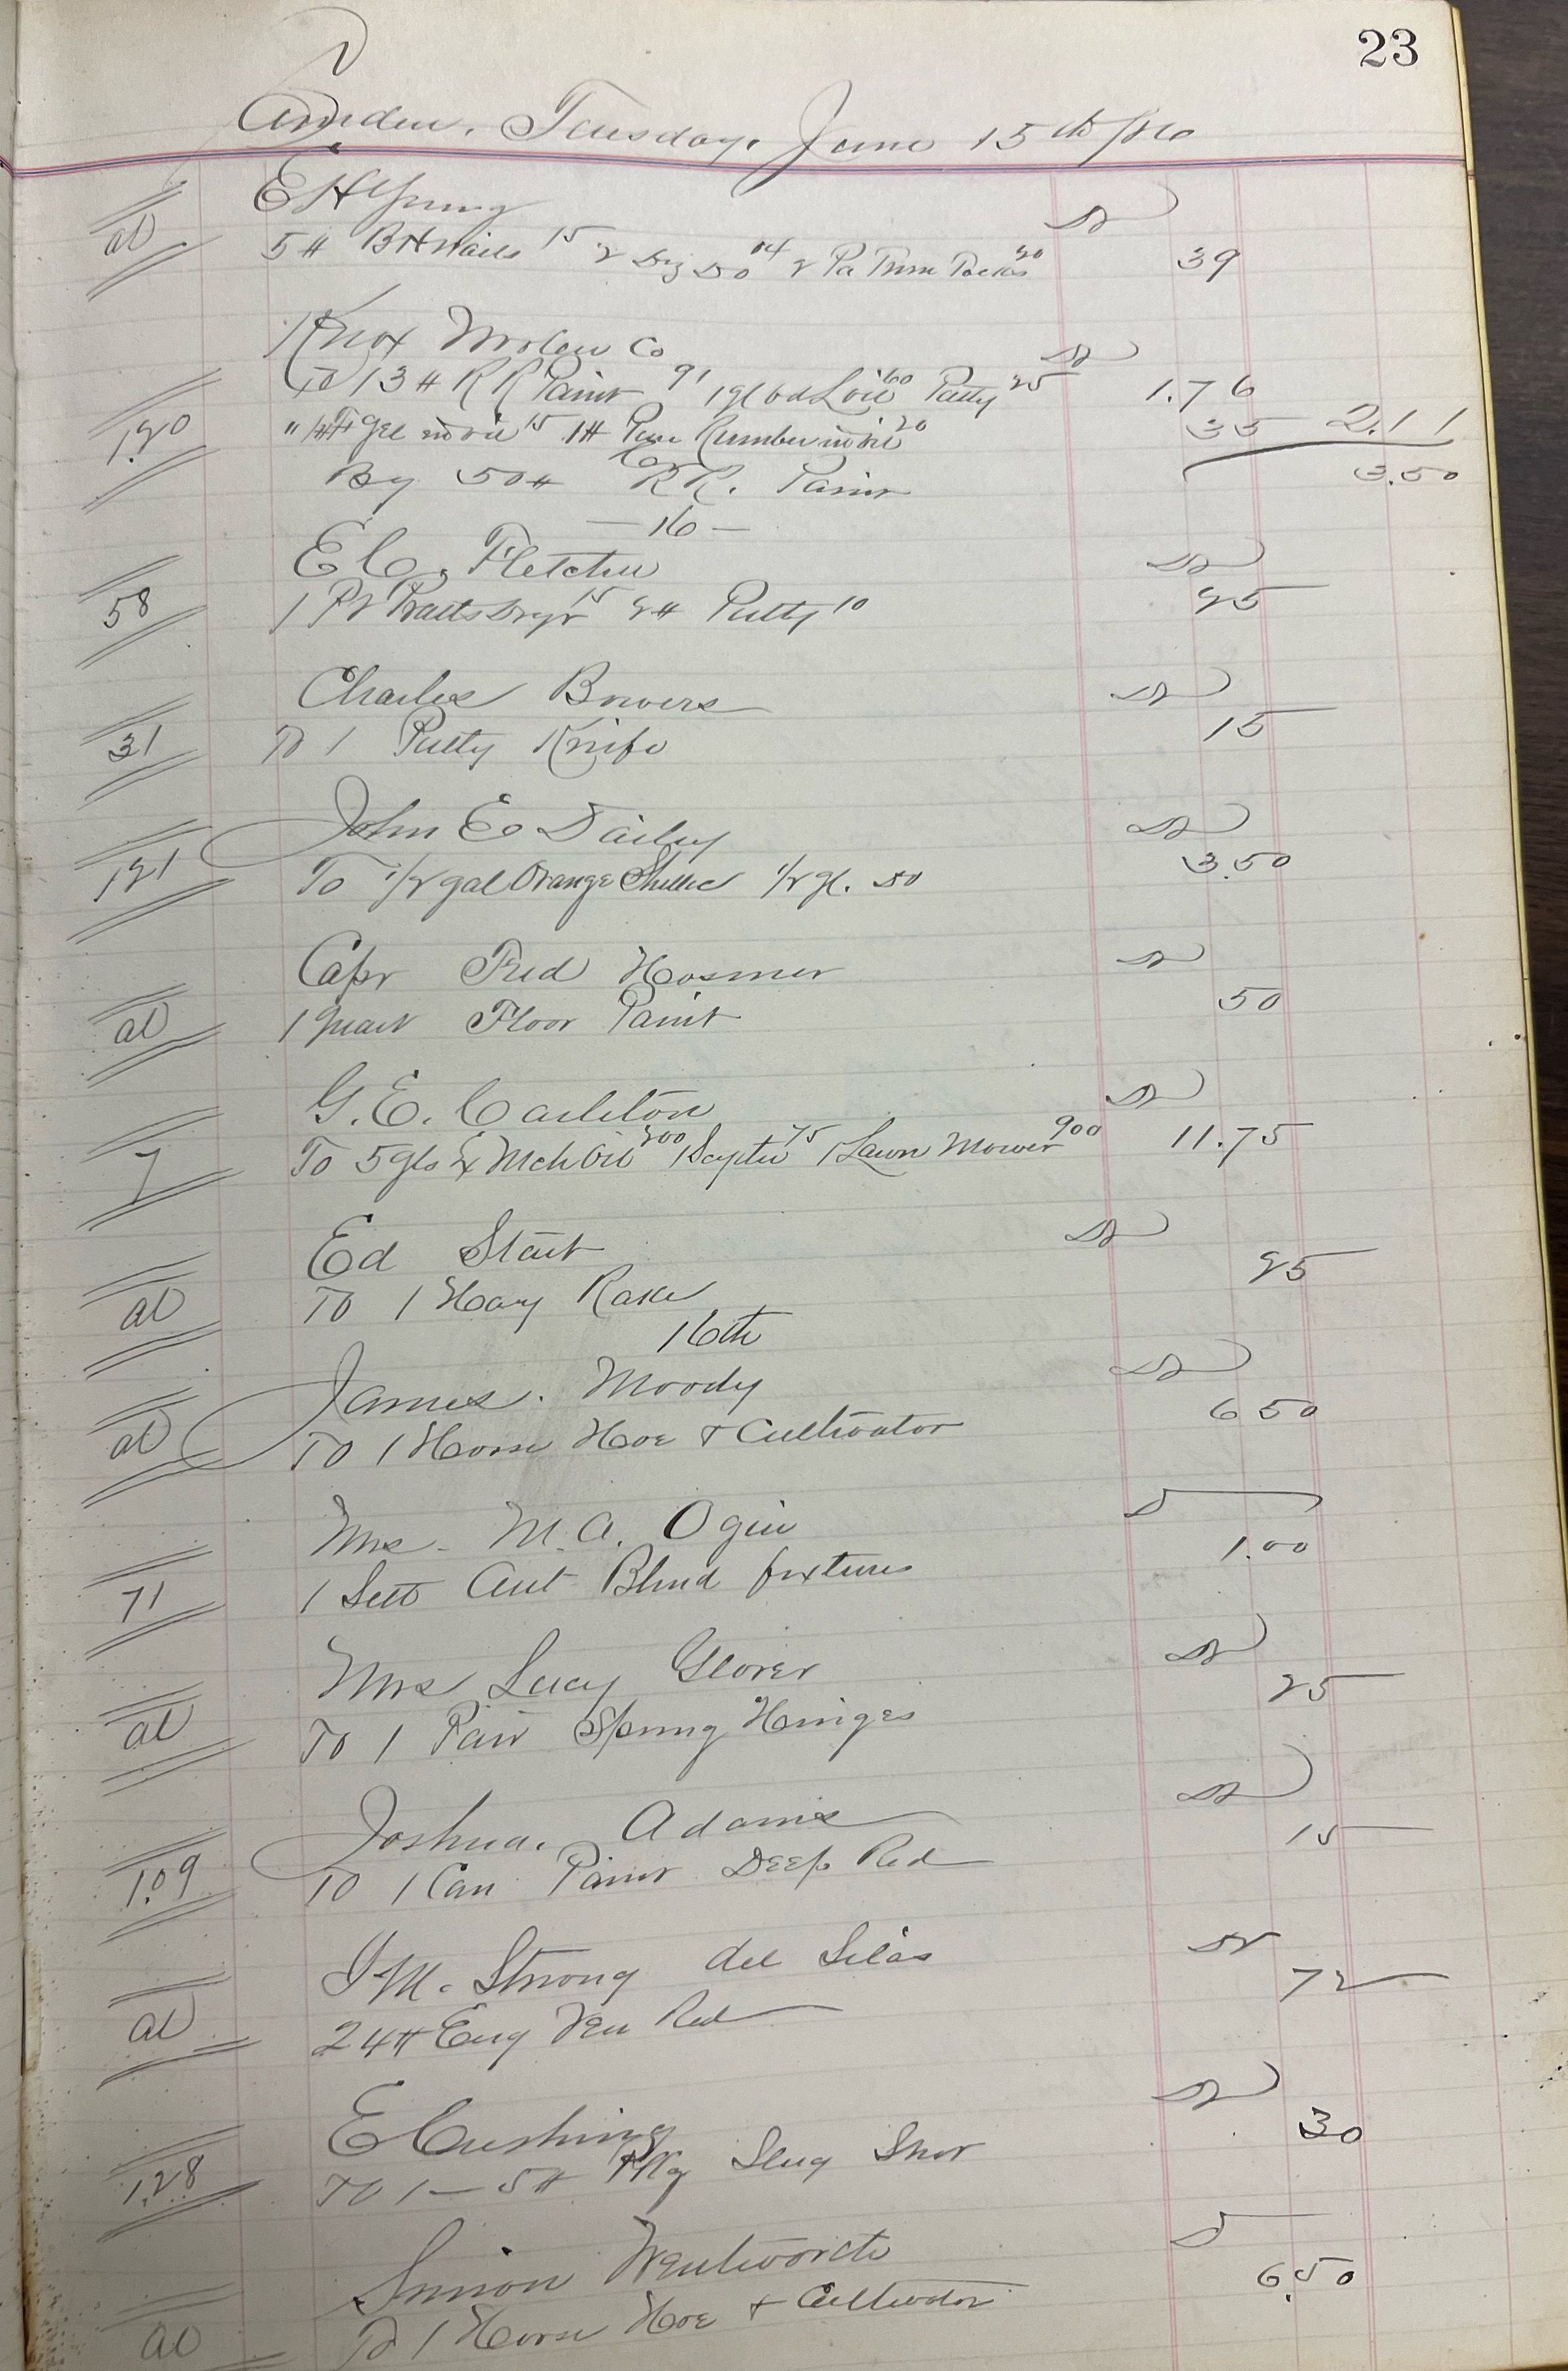 23
Camden, Tuesday, June 15th /86
E H Young Dr
al 5# BH Nails 15 2 Doz Do 04 2 Pa Trim Tacks 20 39
Knox Woolen Co Dr
To 13# R R Paint 91 1 gl bd L oil 60 Putty 25 1.76
120 " 1# Gre in oil 15 1# Pure Rumber in oil 20 35 2.11
By 50# RR. Paint 3.50
—16—
E C. Fletcher Dr
58 1 Pt Pratts Dryr 15 2# Putty 10 25
Charles Bowers Dr
31 To 1 Putty Knife 15
John E Dailey Dr
121 To 1/2 gal Orange Shellac 1/2 gl. Do 3.50
Capt Fred Hosmer Dr
al 1 quart Floor Paint 50
G. E. Carleton Dr
7 To 5 gls Ex Mch Oil 200 1 Scythe 75 1 Lawn Mower 900 11.75
Ed Start Dr
al To 1 Hay Rake 25
16th
James. Moody Dr
al To 1 Horse Hoe & Cultivator 6 50
Mrs. M. A. Ogier D
71 1 Sett Aut Blind fixtures 1.00
Mrs Lucy Glover Dr
al To 1 Pair Spring Hinges 25
Joshua. Adams Dr
109 To 1 Can Paint Deep Red 15
M. Strong del Silas Dr
al 24# Eng Ven Red 72
E Cushing Dr
128 To 1 — 5# Pkg Slug Shot 30
Simon Wentworth D
al To 1 Horse Hoe & Cultivator 6.50